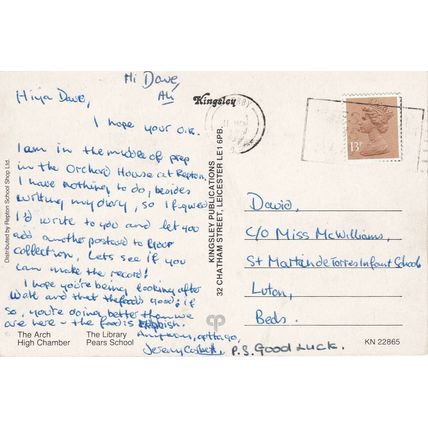 Hi Dave,
Ali
Hiya Dave,
I hope your O.K.
I am in the middle of prep
in the Orchard House at Repton,
I have nothing to do, besides
writing my diary, so I figured
I'd write to you and let you
add another postcard to your
collection. Lets see if you
can make the record!
I hope you're being looking after
Walt and that the food's good; if
so, you're doing better than we
are here - the food is rubbish.
Anyhow, gottago,
Jeremy
P.S. GOOD LUCK.
Kingsley
KINGSLEY PUBLICATIONS
32 CHATHAM STREET, LEICESTER LE1 6PB.
Distributed by Repton School Shop Ltd.
13P
David,
C/O Miss McWilliams,
St Martin de Torres Infant School
Luton,
Beds.
The Arch
High Chamber
The Library
Pears School
KN 22865